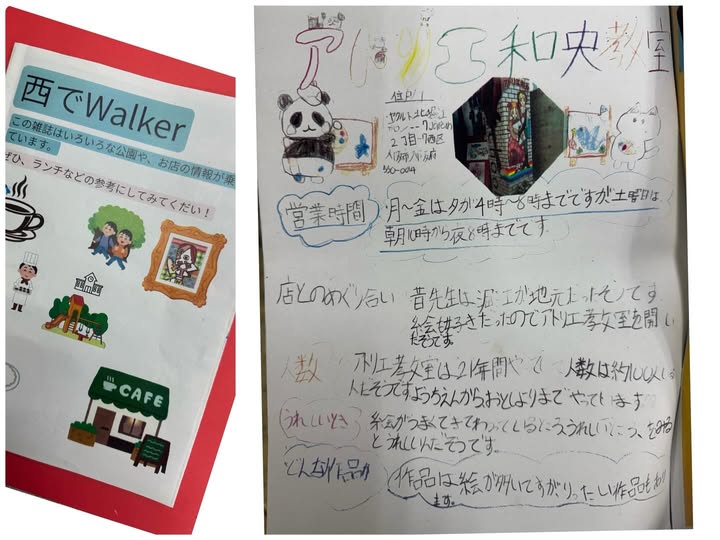 西でWalker
この雑誌はいろいろな公園や、お店の情報が乗
ています。
ぜひ、ランチなどの参考にしてみてくだい！
CAFE
アトリエ和央教室
2丁目-7西区
営業時間
月〜金は夕が4時〜8時までですが土曜日は、
朝10時から夜8時までです。
店とのめぐり合い 昔先生は が地元だったそうです
絵も好きだったのでアトリエ教室を開い
たそうです
人数 アトリエ教室は21年間やって 人数は約100人
人だそうですようちえんからおとしよりまでやっています
うれしいとき 絵がうまくできてわらっているところうれしいところ、をみる
とうれしいんだそうです。
どんな作品か 作品は絵が多いですがりったい作品も
ます。